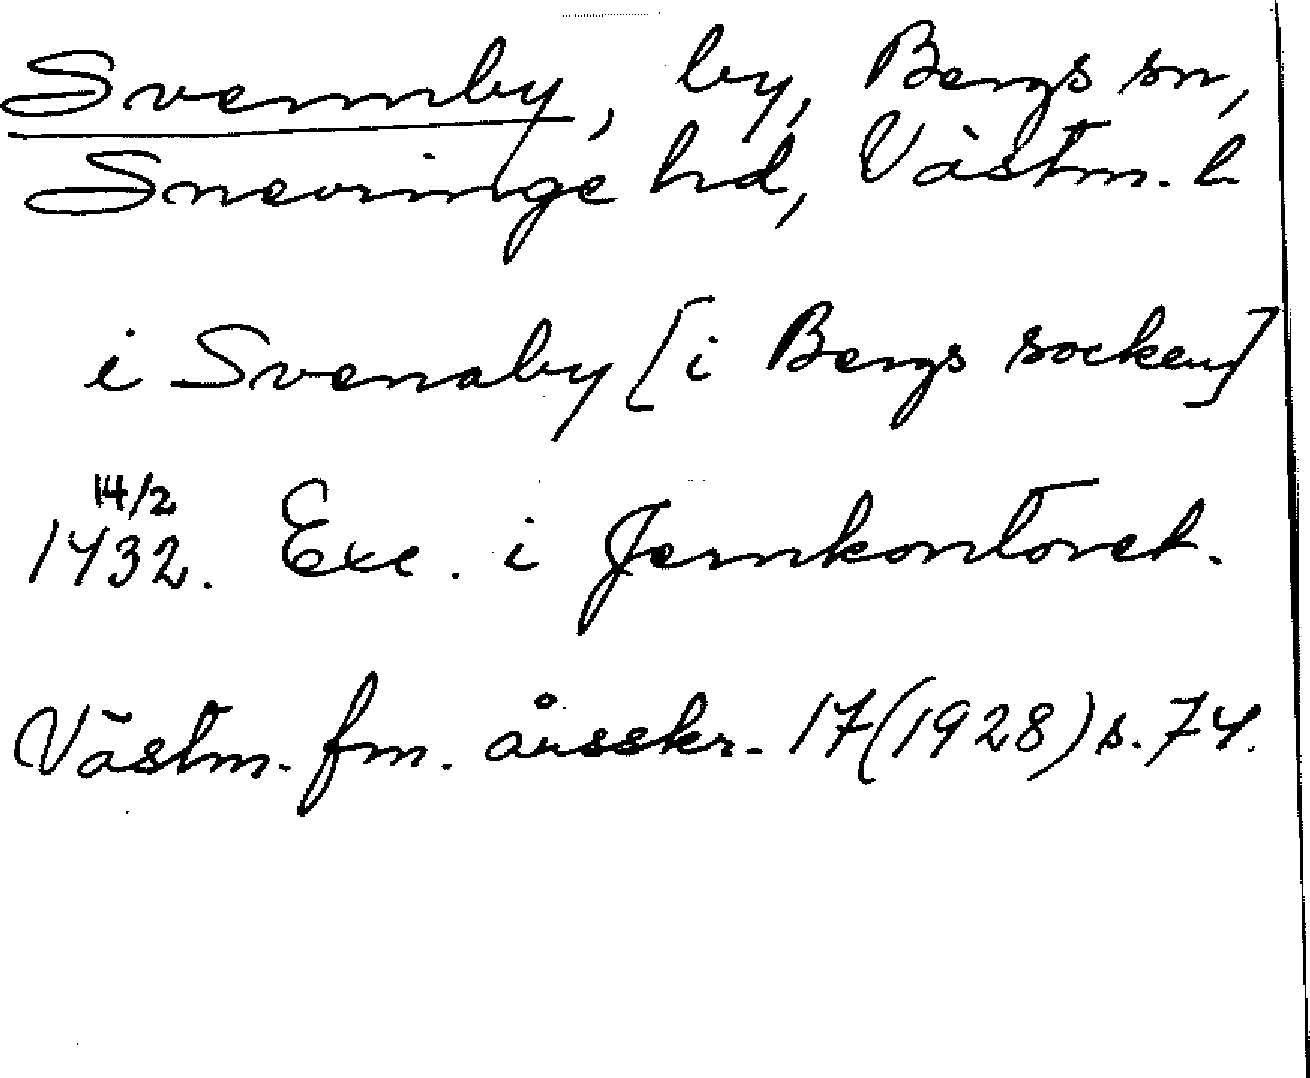 Svennby, by, Bergs sn,
Snevringe hd, Västm. l
i Svenaby [i Bergs socken]
14/2
1432. Exc. i Jernkontoret.
Västm. fm. årsskr. 17(1928) s. 74.